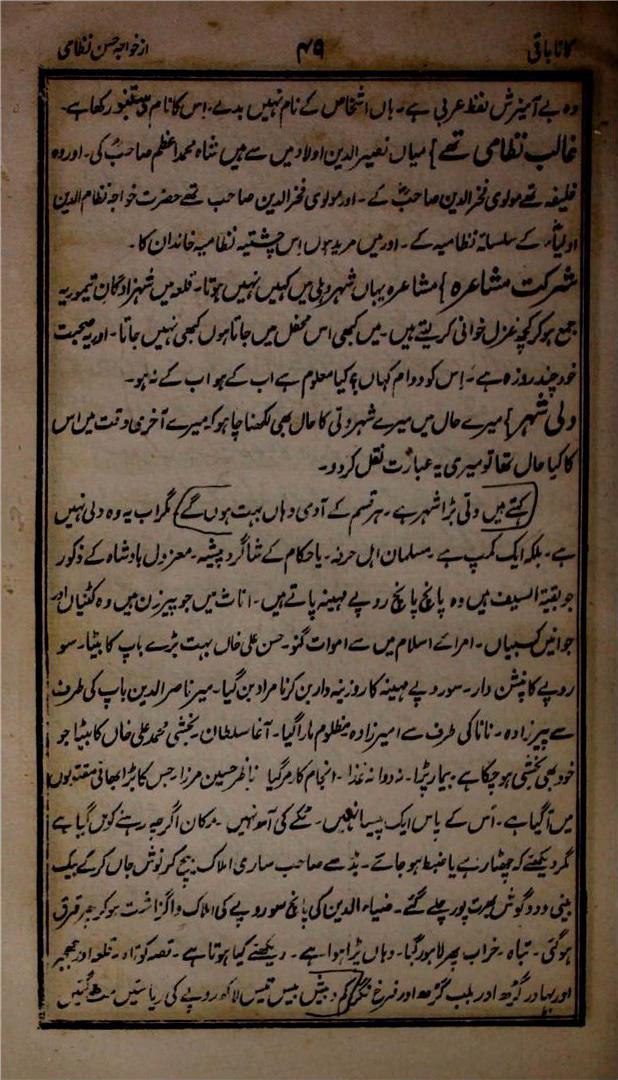 کانا باقی ۴۹ از خواجہ حسن نظامی
وہ بے آمیزش لفظ عربی ہے۔ ہاں اشخاص کے نام نہیں بدے۔ اس کا نام دستنبو رکھا ہے۔
غالب نظامی تھے } میاں نصیر الدین اولاد میں سے ہیں شاہ محمد اعظم صاحبؒ کی۔ اور وہ
خلیفہ تھے مولوی فخر الدین صاحبؒ کے۔ اور مولوی فخر الدین صاحب تھے حضرت خواجہ نظام الدین
اولیاؒ کے سلسلۂ نظامیہ کے۔ اور میں مرید ہوں اس چشتیہ نظامیہ خاندان کا۔
شرکت مشاعرہ } مشاعرہ یہاں شہر دہلی میں کہیں نہیں ہوتا۔ قلعہ میں شہزادگان تیموریہ
جمع ہو کر کچھ غزل خوانی کر لیتے ہیں۔ میں کبھی اس محفل میں جاتا ہوں کبھی نہیں جاتا۔ اور یہ صحبت
خود چند روزہ ہے۔ اس کو دوام کہاں؟ کیا معلوم ہے اب کے ہو اب کے نہ ہو۔
دلی شہر } میرے حال میں میرے شہر دلی کا حال بھی لکھنا چاہو کہ میرے آخری وقت میں اس
کا کیا حال تھا تو میری یہ عبارت نقل کر دو۔
(کہتے ہیں دلی بڑا شہر ہے۔ ہر قسم کے آدمی وہاں بہت ہوں گے) مگر اب یہ وہ دلی نہیں
ہے۔ بلکہ ایک کمپ ہے۔ مسلمان اہل حرفہ۔ یا حکام کے شاگرد پیشہ۔ معزول بادشاہ کے ذکور
جو بقیۃ السیف ہیں وہ پانچ پانچ روپے مہینہ پاتے ہیں۔ اناث میں جو پیر زن ہیں وہ کٹنیاں اور
جوانیں کسبیاں۔ امرائے اسلام میں سے اموات گنو۔ حسن علی خاں بہت بڑے باپ کا بیٹا۔ سو
روپے کا پنشن دار۔ سو روپے مہینہ کا روزینہ دار بن کر نامراد بن گیا۔ میر ناصر الدین باپ کی طرف
سے پیرزادہ۔ نانا کی طرف سے امیرزادہ مظلوم مارا گیا۔ آغا سلطان۔ بخشی محمد علی خاں کا بیٹا جو
خود بھی بخشی ہو چکا ہے بیمار پڑا۔ نہ دوا نہ غذا۔ انجام کار مر گیا ناظر حسین مرزا۔ جس کا بڑا بھائی مقتولوں
میں آگیا ہے۔ اُس کے پاس ایک پیسا نہیں۔ ٹکے کی آمد نہیں۔ مکان اگرچہ رہنے کو مل گیا ہے
مگر دیکھئے کہ چھٹا رہے یا ضبط ہو جائے۔ بڈھے صاحب ساری املاک بیچ کر نوش جاں کر کے بیک
بینی دو دو گوش بھرت پور چلے گئے۔ ضیاء الدین کی پانچ سو روپے کی املاک واگزاشت ہو کر پھر قرق
ہو گئی۔ تباہ۔ خراب پھر لاہور گیا۔ وہاں پڑا ہوا ہے۔ دیکھئے کیا ہوتا ہے۔ قصہ کوتاہ۔ قلعہ اور جھجر
اور بہادر گڑھ اور بلب گڑھ اور فرخ نگر کم و بیش بیس تیس لاکھ روپے کی ریاستیں مٹ گئیں